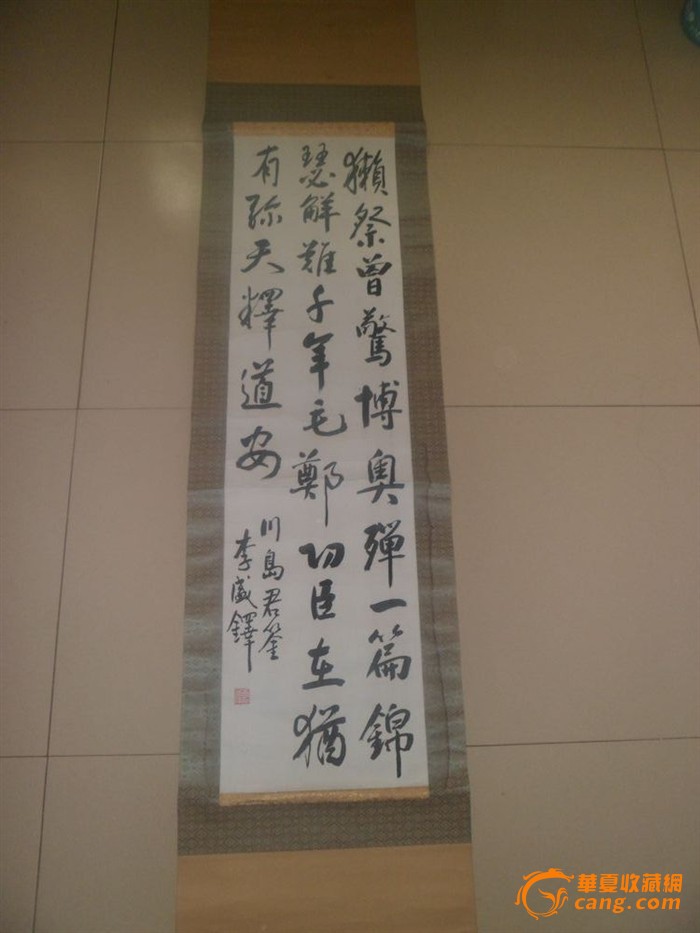 獺祭曾驚博奧殫一篇錦
瑟解難千年毛鄭功臣在猶
有弥天釋道安
川島君鉴
李盛鐸
華夏收藏網
cang.com